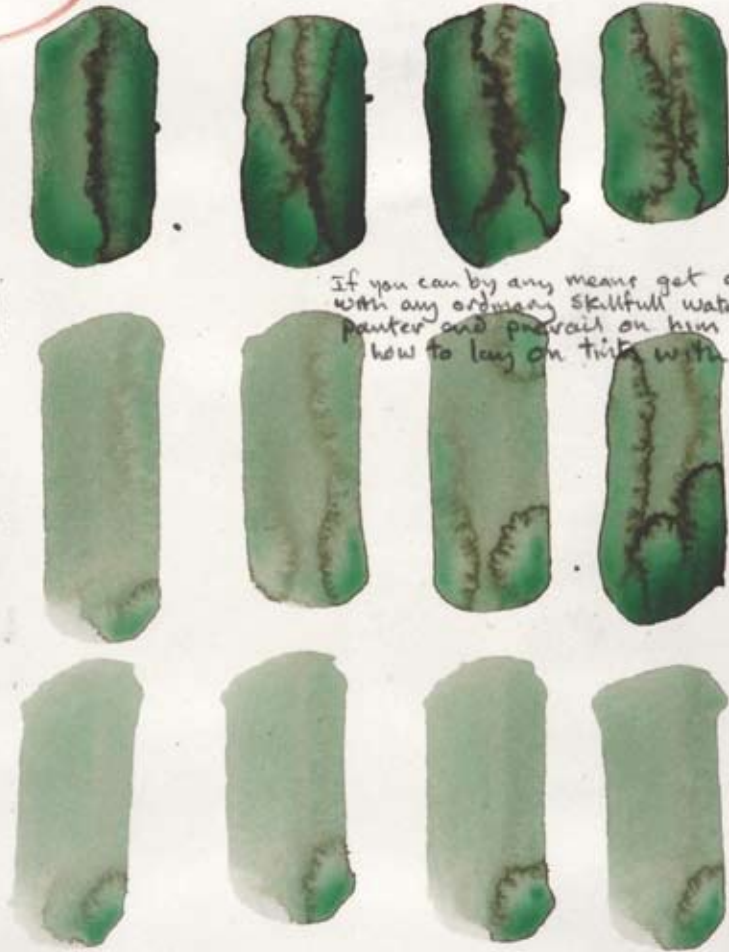 If you can by any means get a
with any ordinary skillfull wat
panter and prevail on him
how to lay on tints with